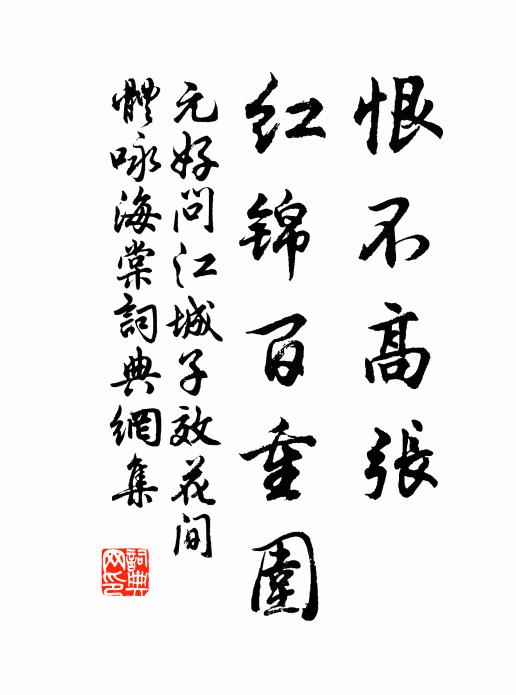 恨不高張
紅錦百重圍
元好问江城子效花间
體咏海棠詞典網集
詞典
网印